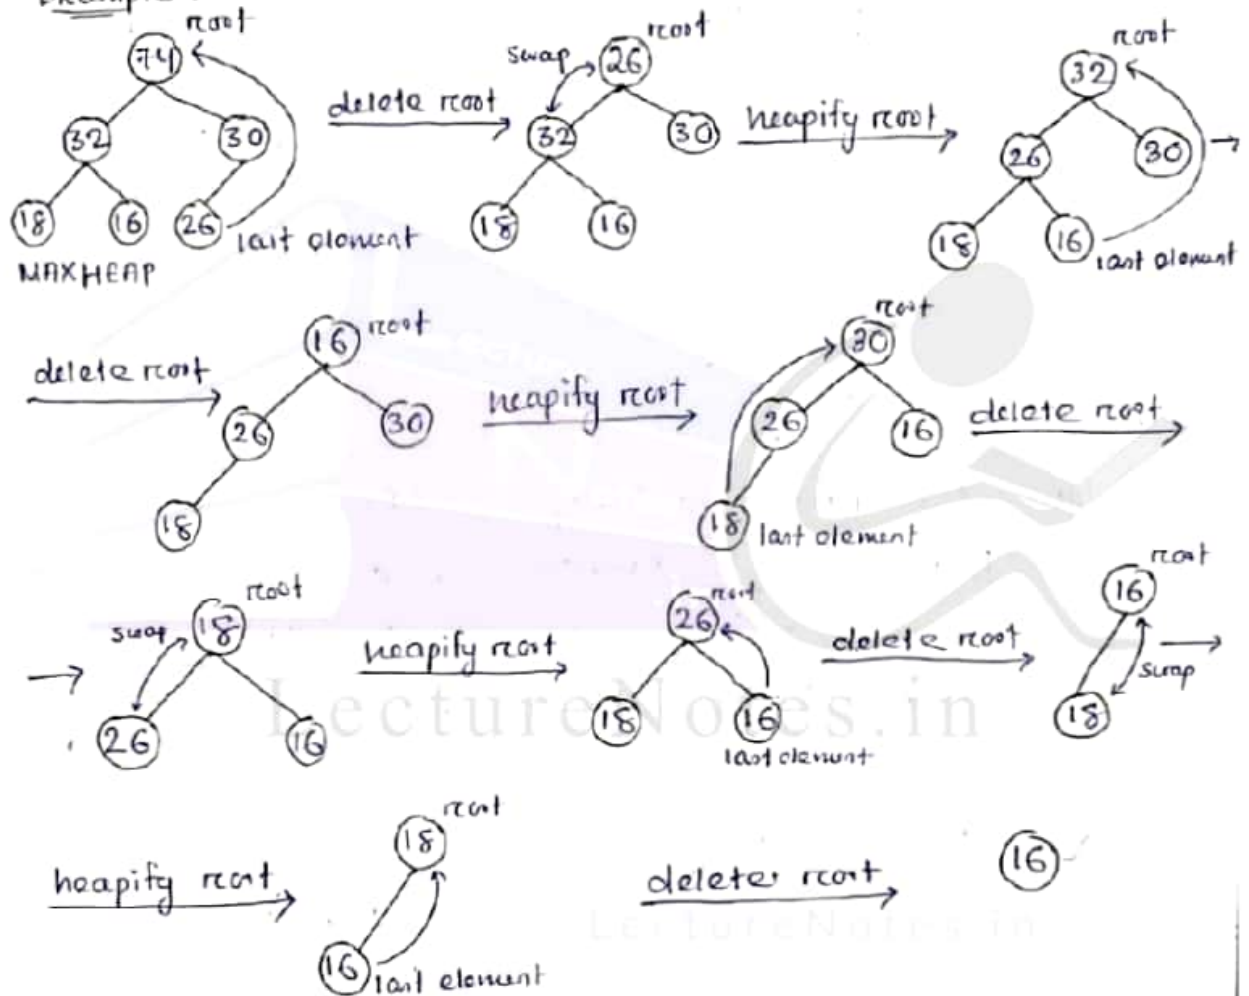 root
74
32 30
18 16 26 last element
MAXHEAP
delete root
root
swap 26
32 30
18 16
heapify root
root
32
26 30
18 16 last element
delete root
16 root
26 30
18
heapify root
root
30
26 16
18 last element
delete root
root
swap 18
26 16
heapify root
root
26
18 16
last element
delete root
root
16
swap
18
heapify root
root
18
16 last element
deleter root
16
LectureNotes.in
LectureNotes.in